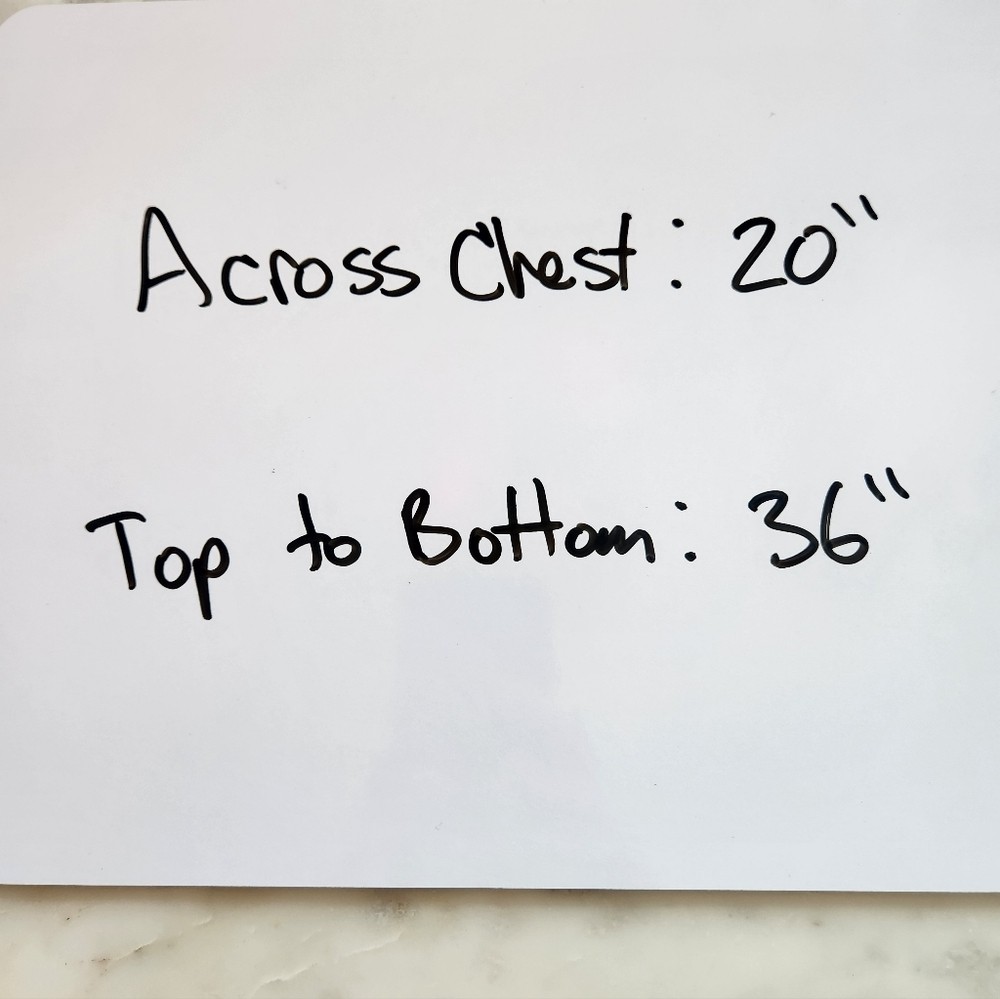 Across Chest: 20"
Top to Bottom: 36"